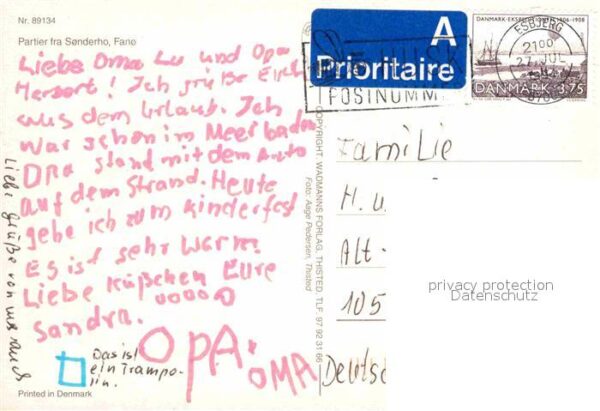 Nr. 89134
Partier fra Sønderho, Fanø
Liebe Oma Lu und Opa
Herbert! Ich grüße Euch
aus dem Urlaub. Ich
war schon im Meer baden
OPA stand mit dem Auto
auf dem Strand. Heute
gehe ich zum Kinderfest
Es ist sehr warm.
Liebe Küßchen Eure
ooooO
Sandra.
OPA.
OMA
Das ist
ein Trampo-
lin.
Liebe Grüße von uns auch
Printed in Denmark
COPYRIGHT. WADMANNS FORLAG, THISTED. TLF. 97 92 31 66
Foto: Aage Pedersen, Thisted
A
Prioritaire
HUSK
POSTNUMM
DANMARK-EKSP 1906-1908
DANMARK 3.75
ESBJERG
2100
27. JUL
Familie
H. u.
Alt-
105
Deutsc
privacy protection
Datenschutz